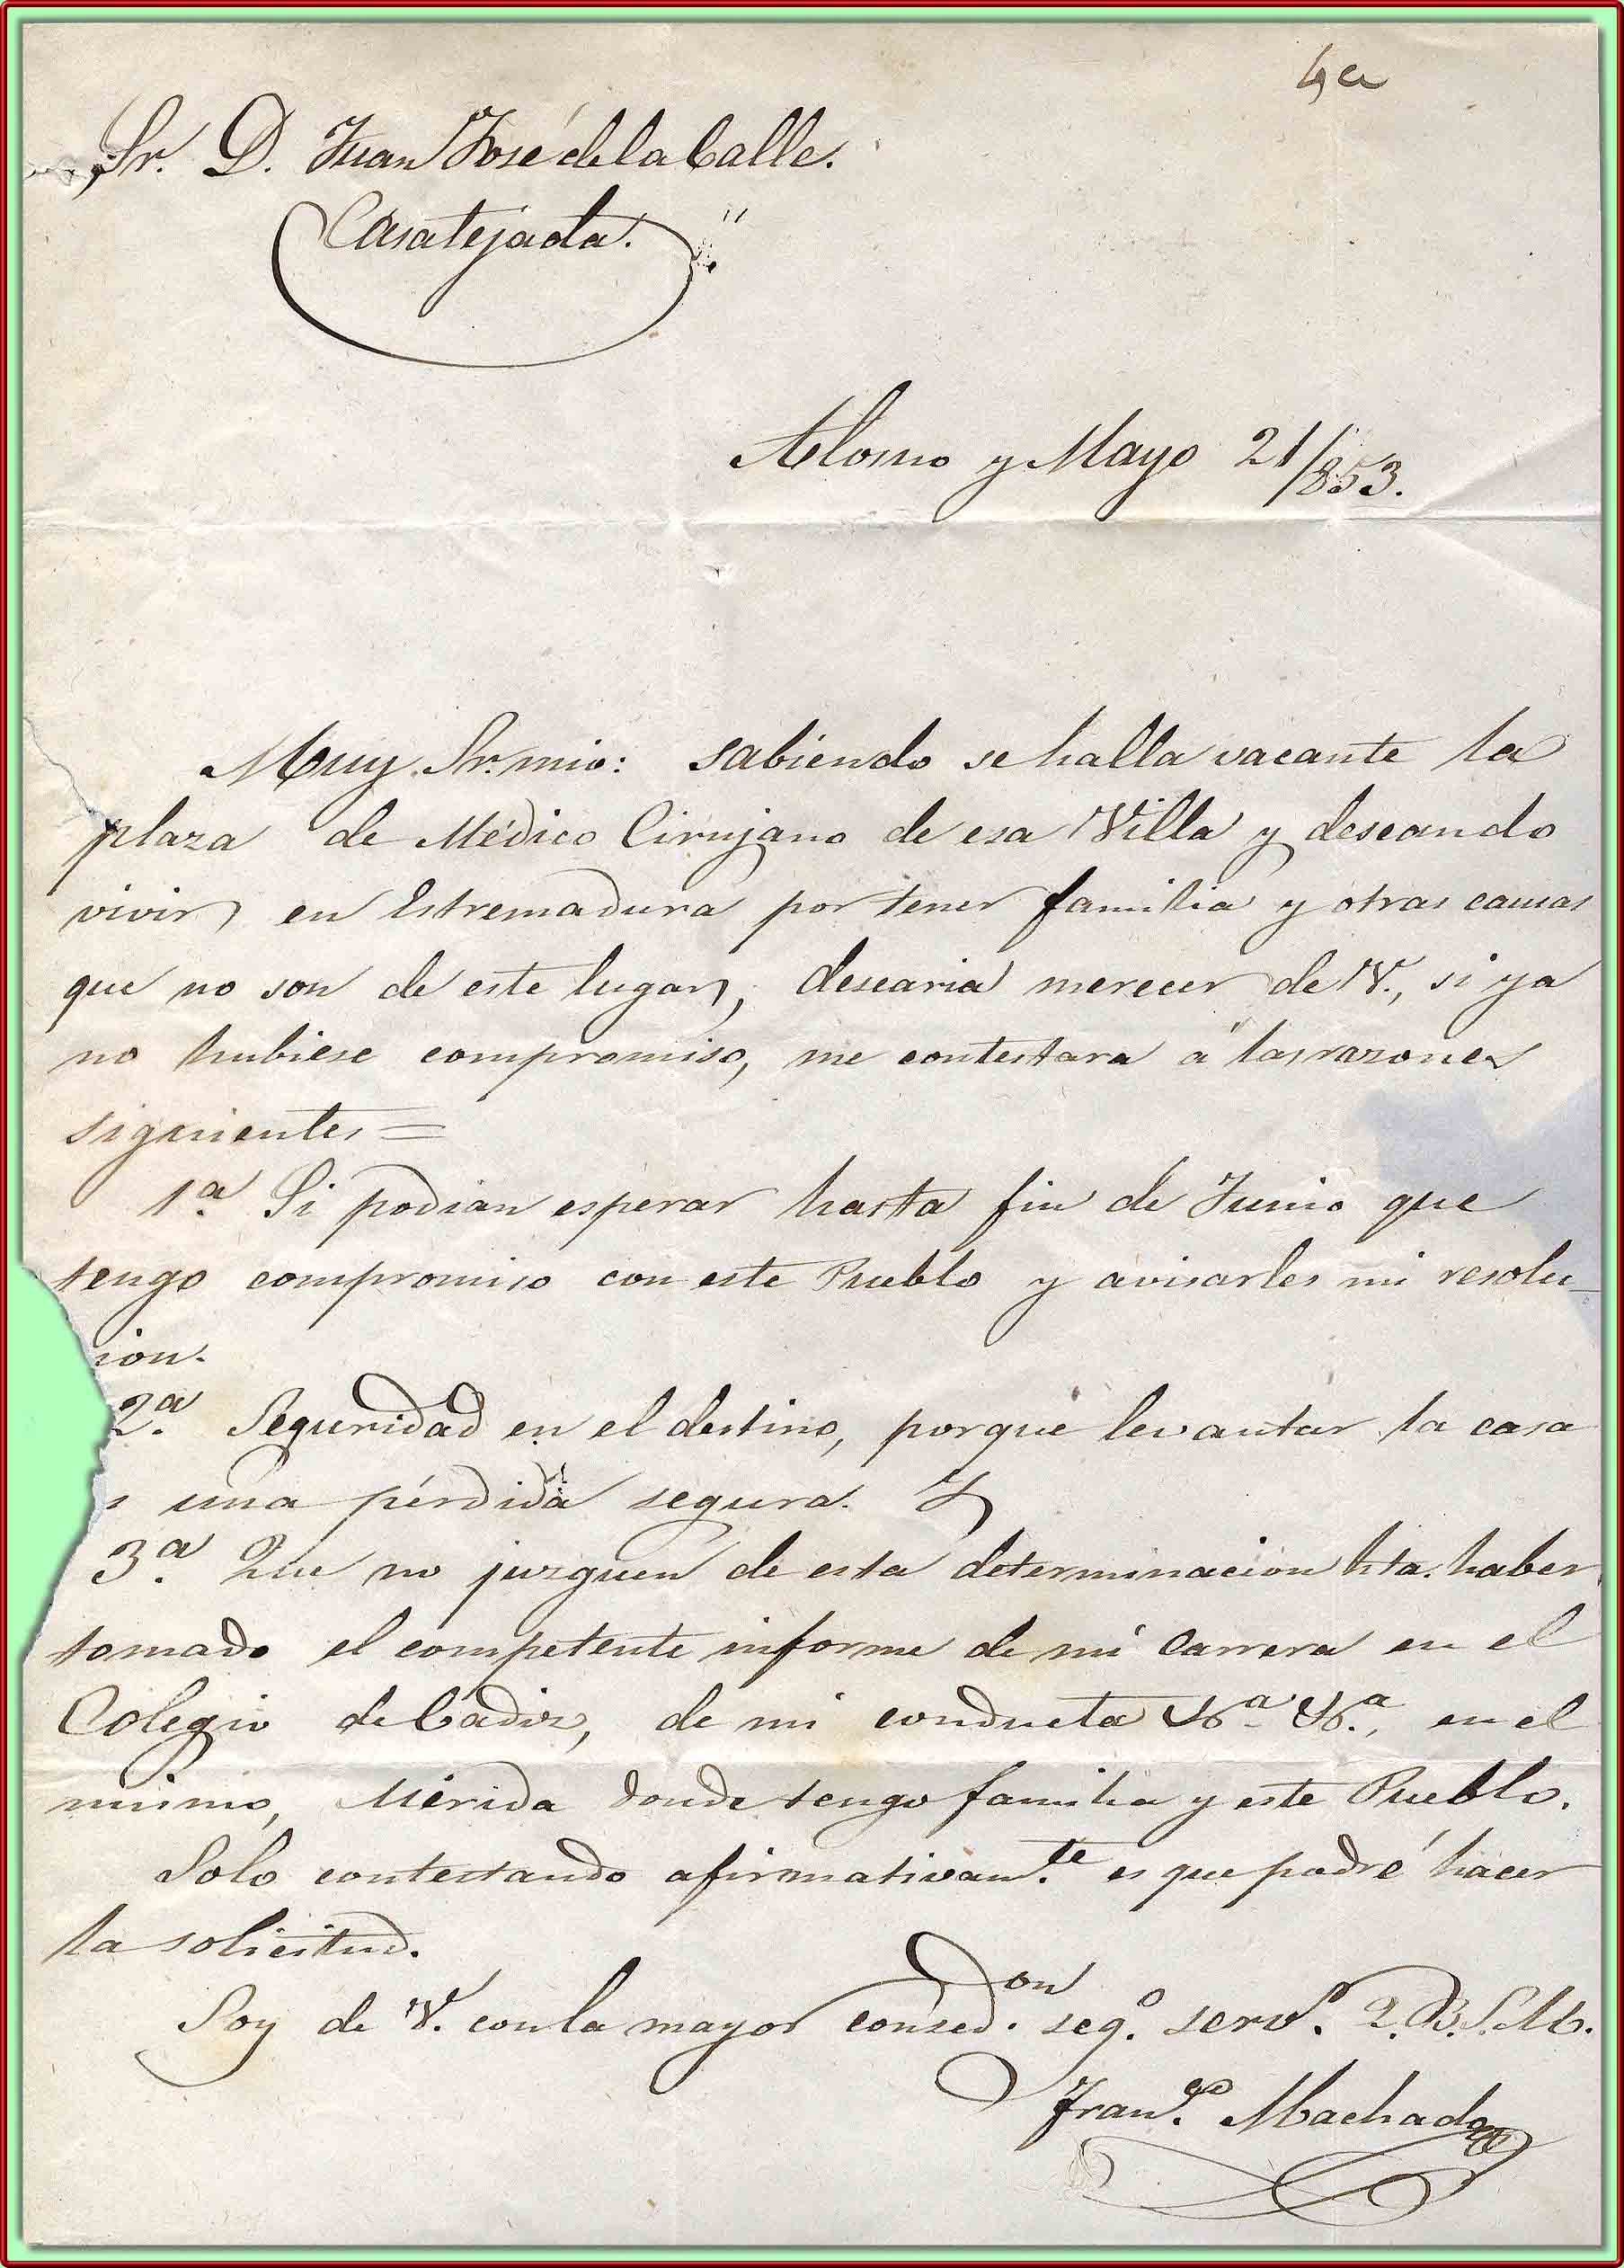 4a
Sr. D. Juan José de la Calle.
Casatejada.
Alosno y Mayo 21/853.
Muy Sr. mio: sabiendo se halla vacante la
plaza de Médico Cirujano de esa Villa y deseando
vivir en Estremadura por tener familia y otras causas
que no son de este lugar, desearia merecer de V., si ya
no hubiese compromiso, me contestara á las razones
siguientes =
1ª Si podian esperar hasta fin de Junio que
tengo compromiso con este Pueblo y avisarles mi resolu-
cion.
2ª Seguridad en el destino, porque levantar la casa
s una pérdida segura. Y
3ª Que no juzguen de esta determinacion hta. haber
tomado el competente informe de mi carrera en el
Colegio de Cadiz, de mi conducta &ª &ª, en el
mismo, Mérida donde tengo familia y este Pueblo.
Solo contestando afirmativamte. es que podré hacer
la solicitud.
Soy de V. con la mayor consedon. sego. servr. Q.B.S.M.
Franco. Machado